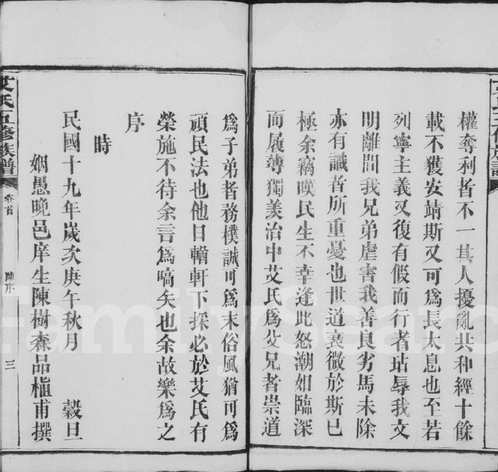 權奪利者不一其人擾亂共和經十餘
載不獲安靖斯又可爲長太息也至若
列寧主義又復有假而行者玷辱我文
明離間我兄弟虐害我善良劣馬未除
亦有識者所重憂也世道衰微於斯已
極余竊嘆民生不幸逢此怒潮如臨深
而履薄獨羨治中艾氏爲父兄者崇道
爲子弟者務樸誠可爲末俗風猶可爲
頑民法也他日輶軒下採必於艾氏有
榮施不待余言爲嚆矢也余故樂爲之
序
時
民國十九年歲次庚午秋月 穀旦
姻愚晚邑庠生陳樹森品楨甫撰
艾氏五修族譜
卷首
三
FamilySearch